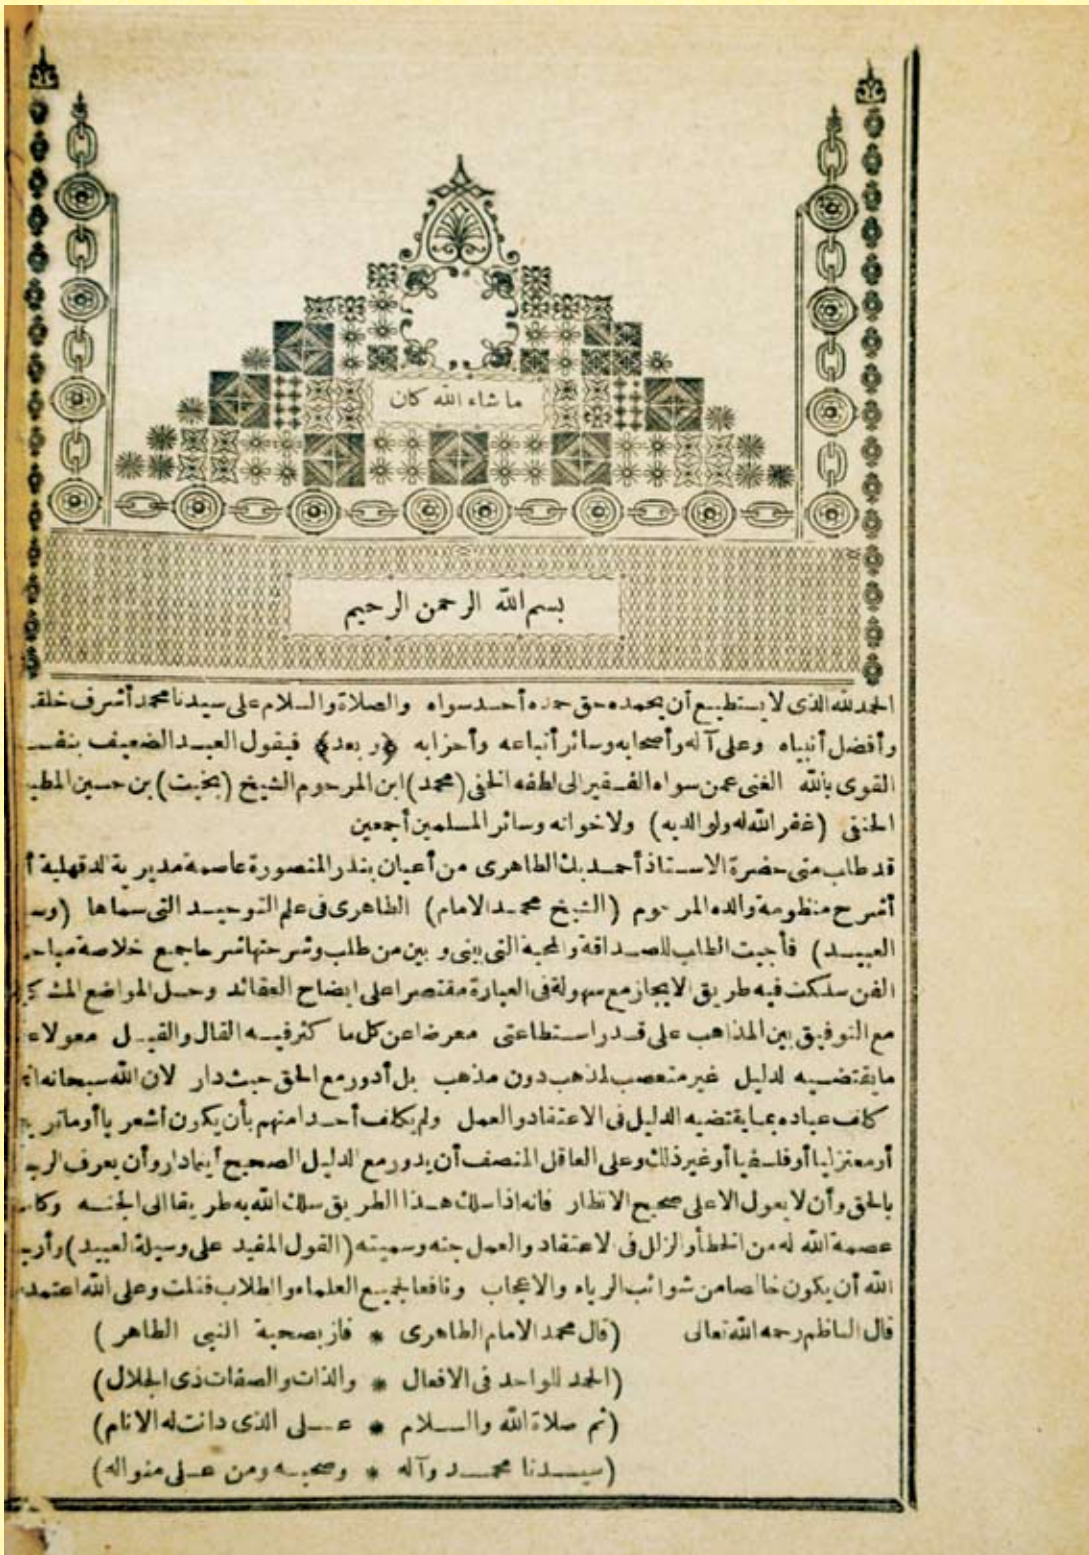 ما شاء الله كان
بسم الله الرحمن الرحيم
الحمد لله الذى لا يستطيع أن يحمده حق حمده أحد سواه والصلاة والسلام على سيدنا محمد أشرف خلقه
وأفضل أنبياه وعلى آله وأصحابه وسائر أتباعه وأحزابه ﴿وبعد﴾ فيقول العبد الضعيف بنفسه
القوى بالله الغنى عمن سواه الفقير الى لطفه الخفى (محمد) ابن المرحوم الشيخ (بخيت) بن حسين
الحنفى (غفر الله له ولوالديه) ولاخوانه وسائر المسلمين أجمعين
قد طلب منى حضرة الاستاذ أحمد بك الطاهرى من أعيان بندر المنصورة عاصمة مديرية الدقهلية
أشرح منظومة والده المرحوم (الشيخ محمد الامام) الطاهرى فى علم التوحيد التى سماها
العبيد) فأجبت الطلب للصداقة والمحبة التى بينى وبين من طلب وشرحتها شرحا جمع خلاصة
الفن سلكت فيه طريق الايجاز مع سهولة فى العبارة مقتصرا على ايضاح العقائد وحل المواضع
مع التوفيق بين المذاهب على قدر استطاعتى معرضا عن كل ما كثر فيه القال والقيل معولا
ما يقتضيه الدليل غير متعصب لمذهب دون مذهب بل أدور مع الحق حيث دار لان الله سبحانه
كلف عباده بما يقتضيه الدليل فى الاعتقاد والعمل ولم يكلف أحدا منهم بأن يكون أشعريا أو
أو معتزليا أو فلسفيا أو غير ذلك وعلى العاقل المنصف أن يدور مع الدليل الصحيح أينما دار وأن يعرف
بالحق وأن لا يعول الا على صحيح الانظار فانه اذا سلك هذا الطريق سلك الله به طريقا الى الجنه
عصمة الله له من الخطأ والزلل فى الاعتقاد والعمل جنه وسميته (القول المفيد على وسيلة العبيد)
الله أن يكون خالصا من شوائب الرياء والاعجاب ونافعا لجميع العلماء والطلاب فقلت وعلى الله
قال الناظم رحمه الله تعالى (قال محمد الامام الطاهرى * فاز بصحبة النبى الطاهر)
(الحمد للواحد فى الافعال * والذات والصفات ذى الجلال)
(ثم صلاة الله والسلام * على الذى دانت له الانام)
(سيدنا محمد وآله * وصحبه ومن على منواله)